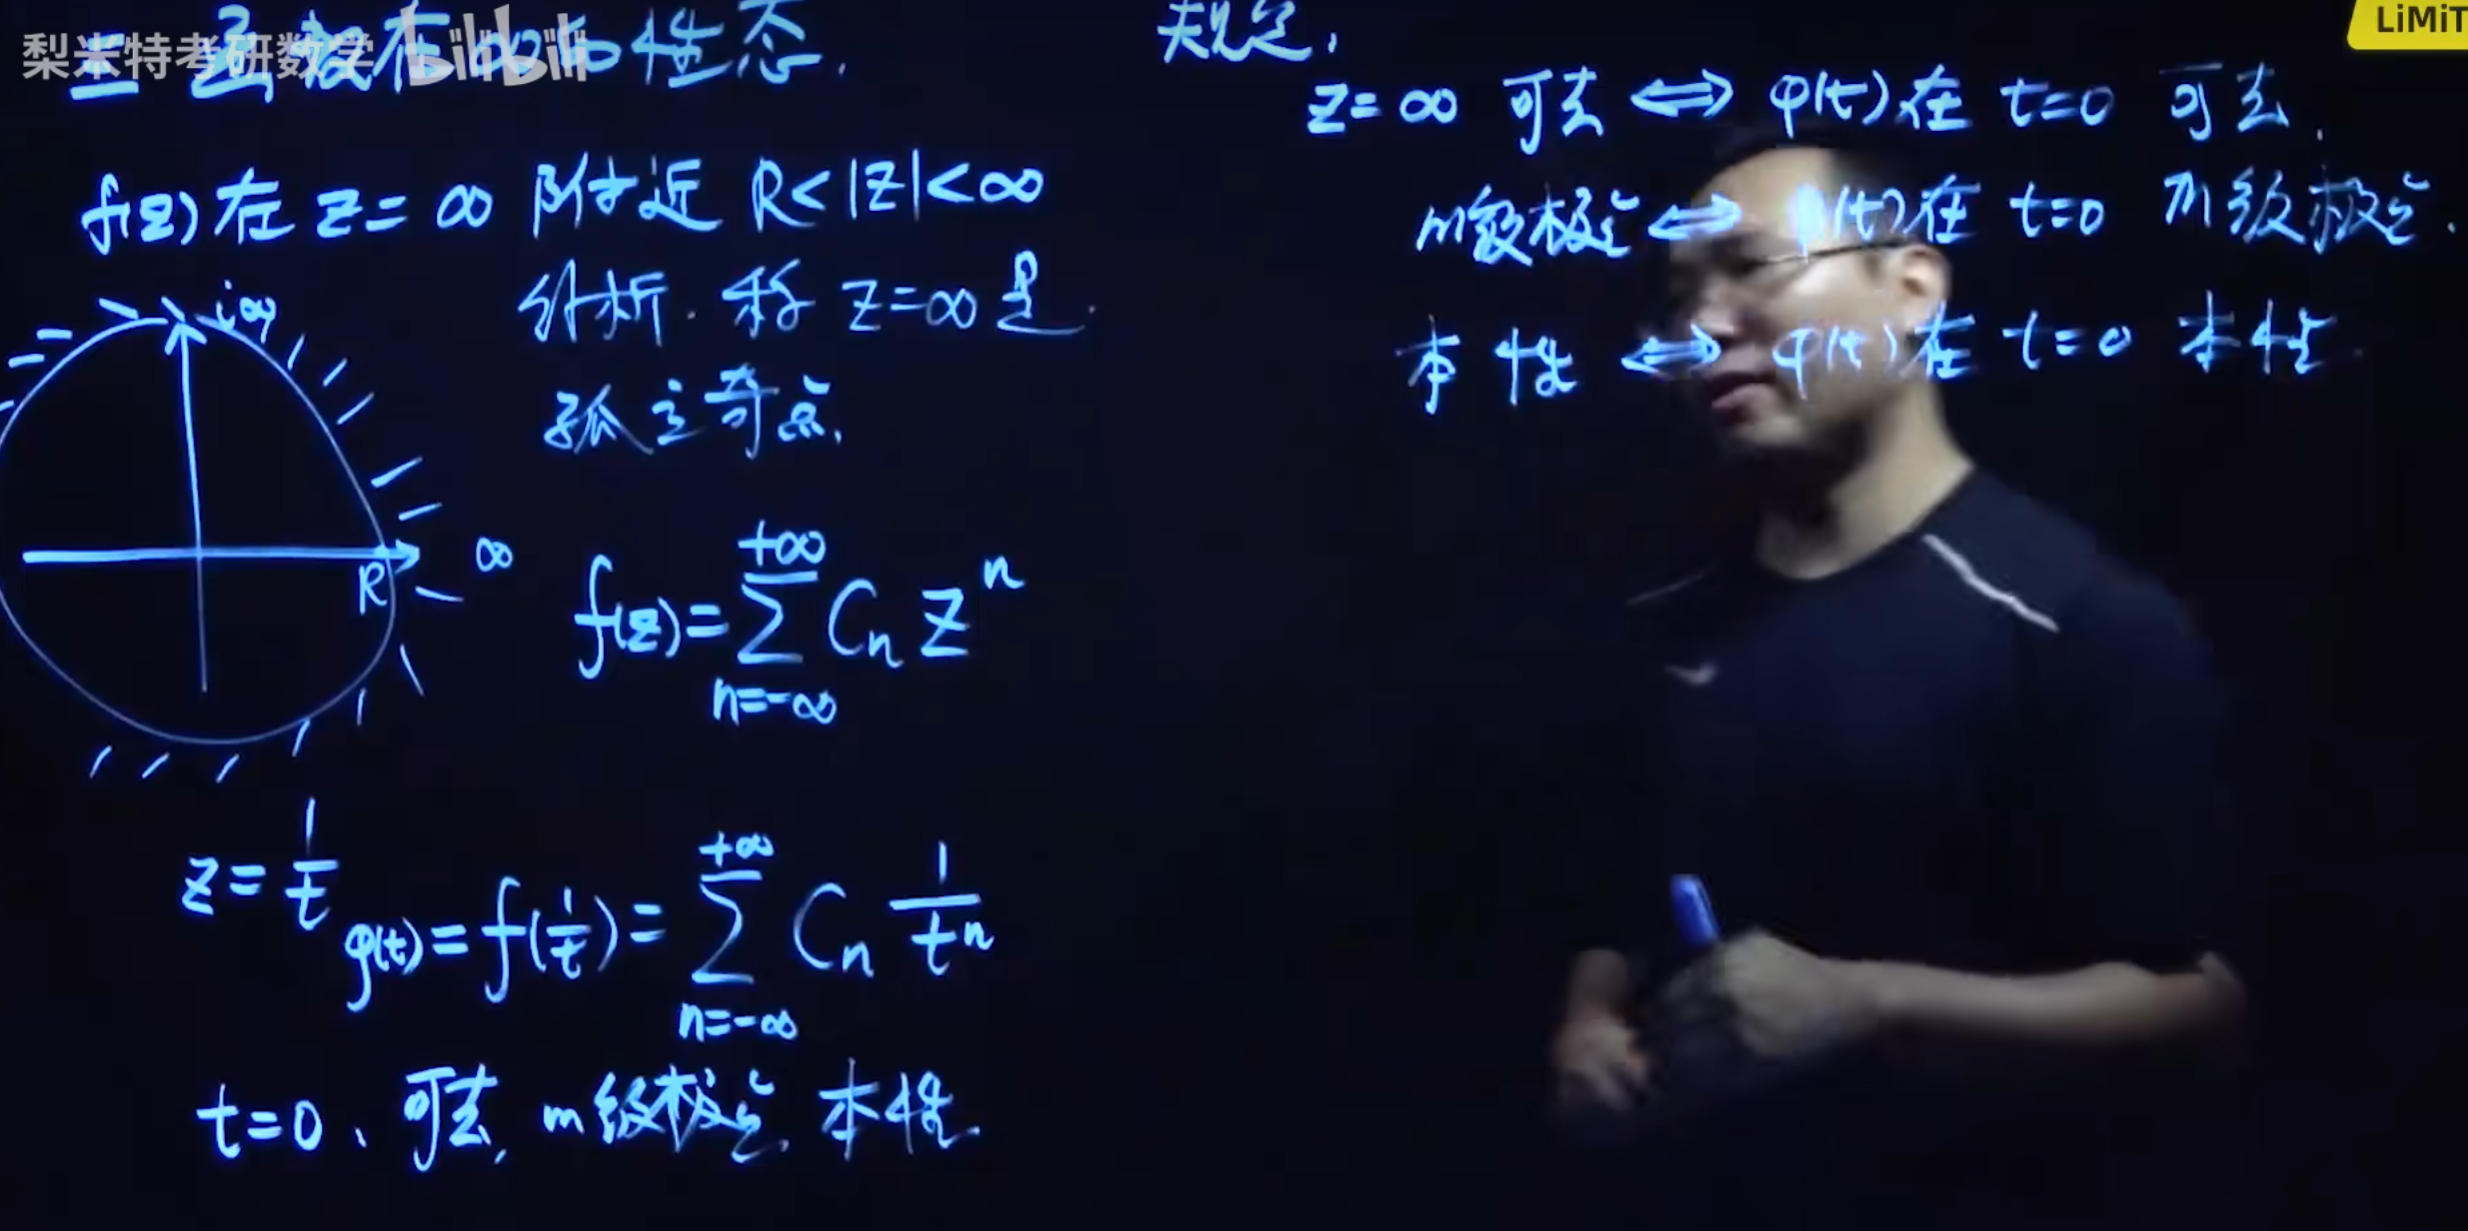 梨米特考研数学 bilibili
三 函数在∞的性态.
f(z)在 z=∞ 附近 R<|z|<∞
解析. 称 z=∞是
孤立奇点.
i∞
R
∞
f(z)=∑_{n=-∞}^{+∞} C_n z^n
z=1/t
φ(t)=f(1/t)=∑_{n=-∞}^{+∞} C_n 1/t^n
t=0、可去, m级极点, 本性
LiMiT
规定,
z=∞ 可去 ⟺ φ(t)在 t=0 可去.
m级极点 ⟺ φ(t)在 t=0 m级极点.
本性 ⟺ φ(t)在 t=0 本性.